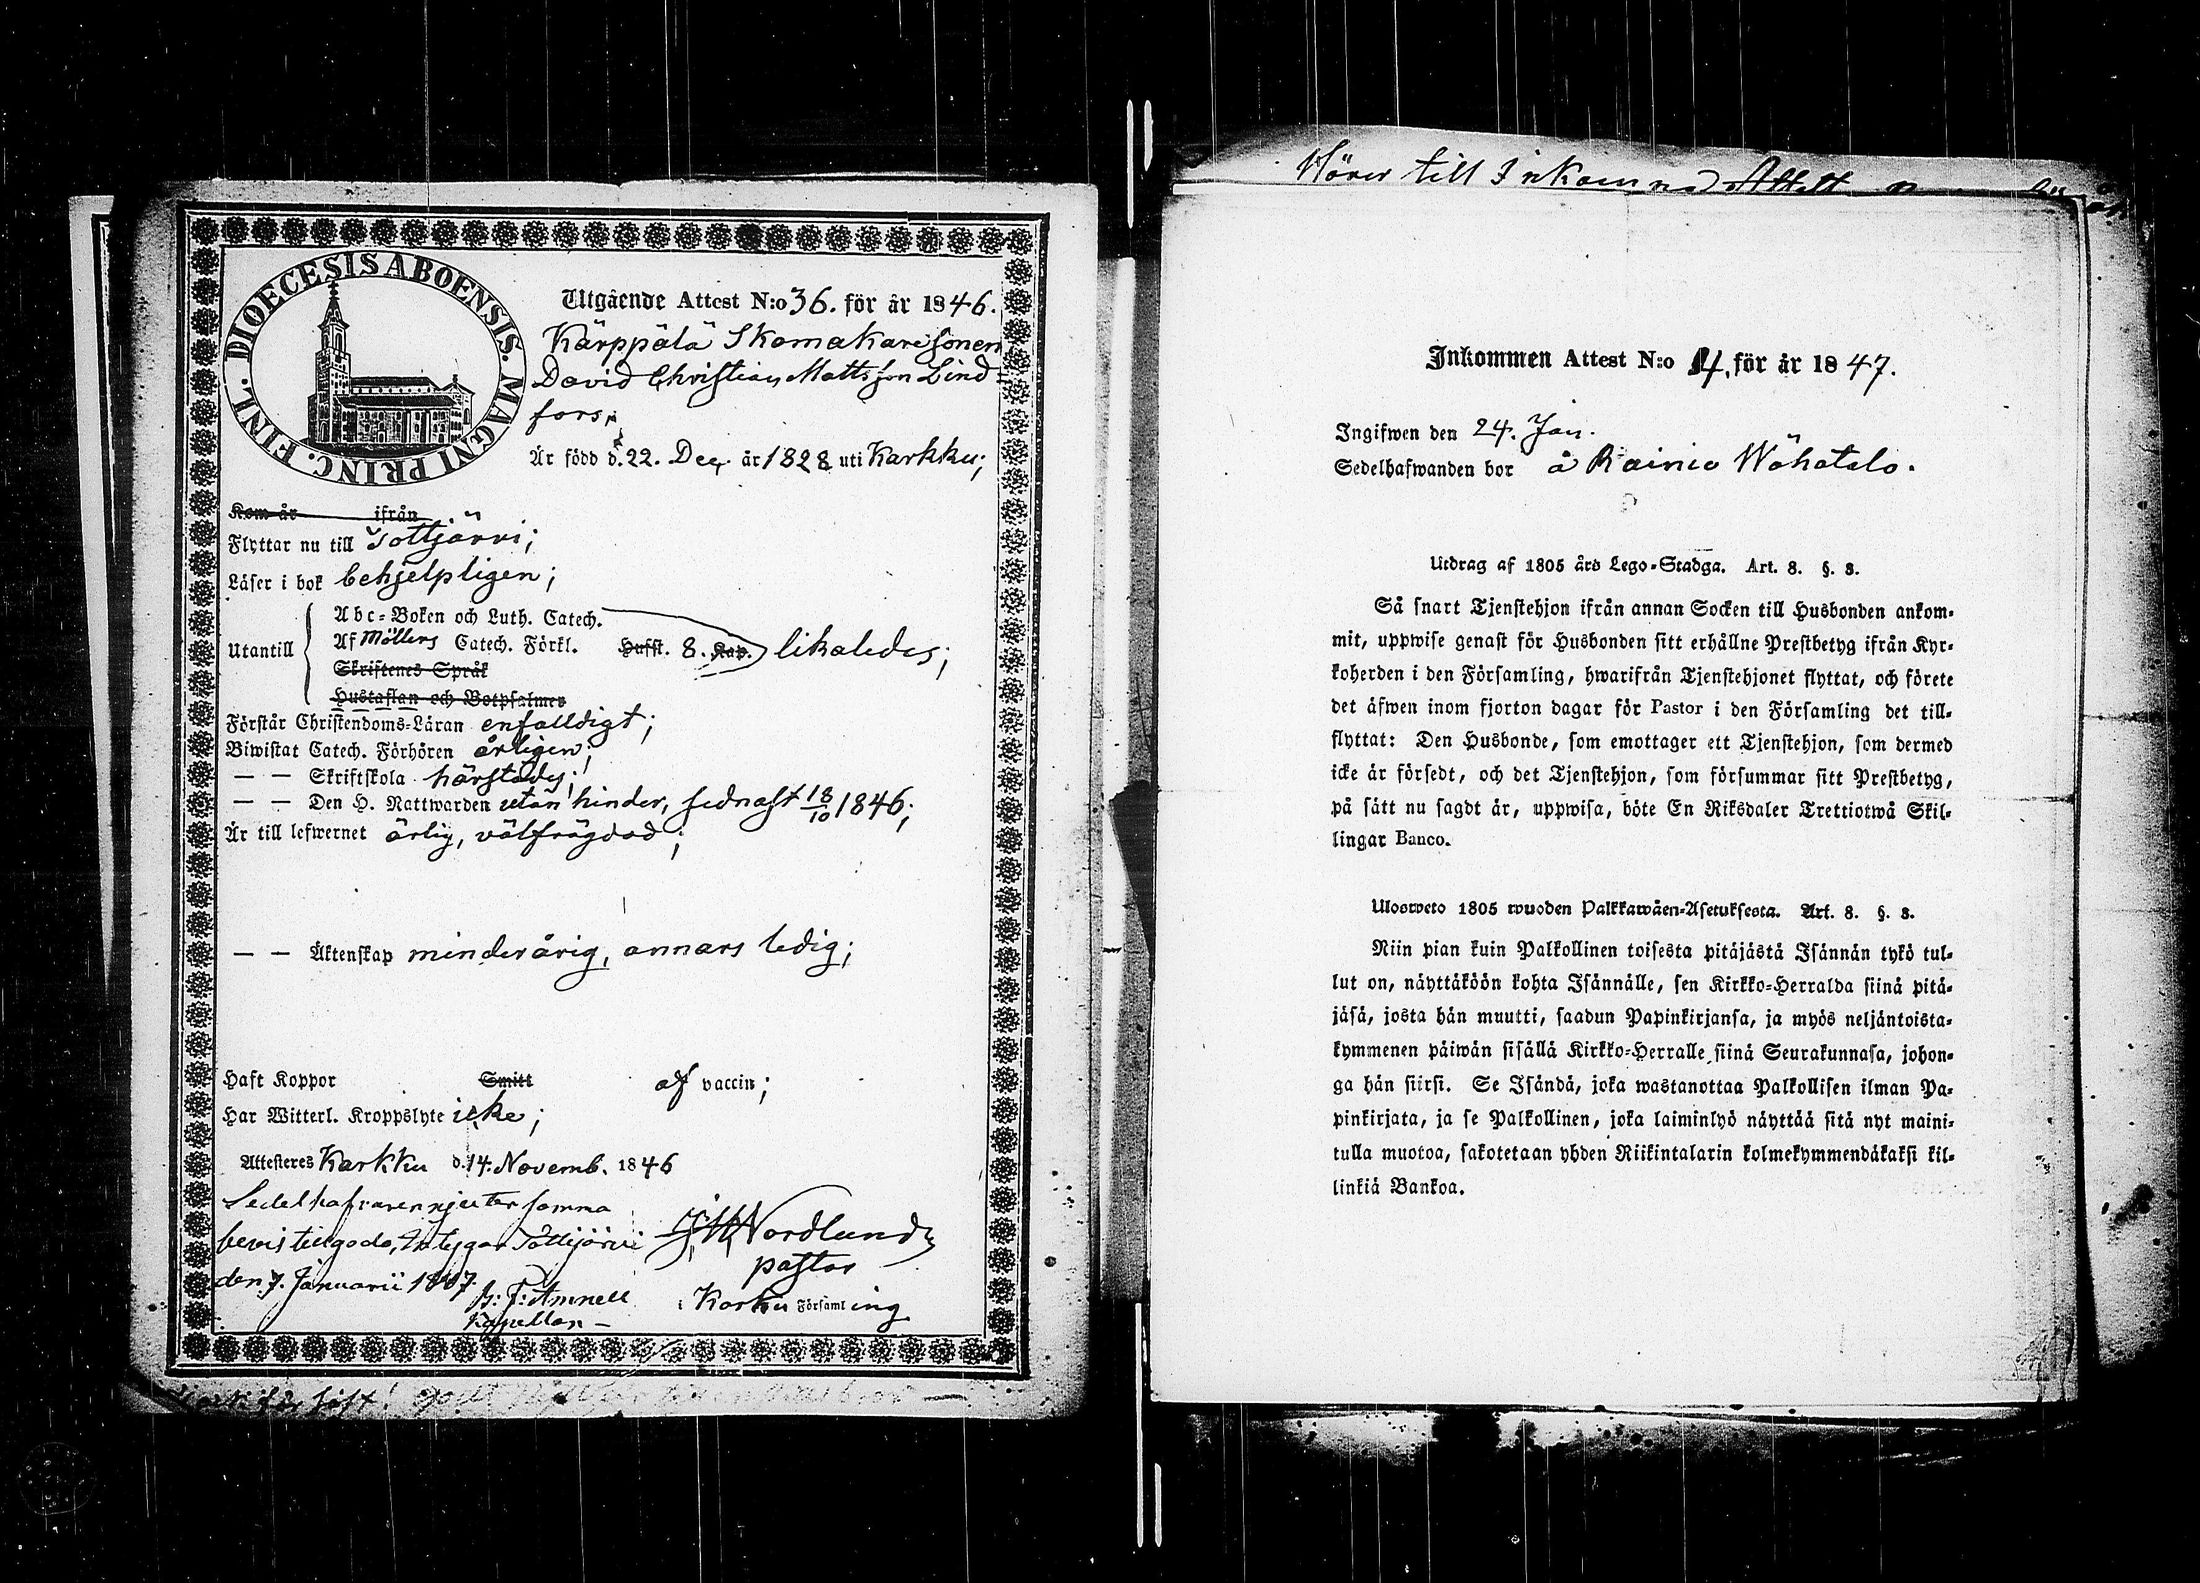 DIOECESIS ABOENSIS. MAGNI PRINC. FINL.
Utgående Attest N:o 36. för år 1846.
Kärppälä Skomakaresonen
David Christian Mattsson Lind-
fors,
Är född d. 22. Dec. år 1828 uti Karkku;
Kom år ifrån
Flyttar nu till Tottjärvi;
Läser i bok behjelpligen;
Utantill
Abc-Boken och Luth. Catech.
Af Möllers Catech. Förkl. Hufst. 8. Kap. likaledes;
Skriftenes Språk
Hustaflan och Botpsalmer
Förstår Christendoms-Läran enfalldigt;
Biwistat Catech. Förhören årligen;
— — Skriftskola härstädes;
— — Den H. Nattwarden utan hinder, sednast 18/10 1846;
Är till lefwernet ärlig, välfrägdad;
— — Äktenskap minderårig, annars ledig;
Haft Koppor Smitt af vaccin;
Har Witterl. Kroppslyte icke;
Attesteres Karkku d. 14. Novemb. 1846
Sedelhafvaren njuter samma
bevis tillgodo, Intygar Tottijärvi
den 7. Januarii 1847.
Nordlund
pastor
Kapellan
i Karku Församling
Hörer till Inkomne Attest
Inkommen Attest N:o 4. för år 1847.
Ingifwen den 24. Jan.
Sedelhafwanden bor å Rainio Wähätalo.
Utdrag af 1805 års Lego-Stadga. Art. 8. §. 8.
Så snart Tjenstehjon ifrån annan Socken till Husbonden ankom-
mit, uppwise genast för Husbonden sitt erhållne Prestbetyg ifrån Kyr-
koherden i den Församling, hwarifrån Tjenstehjonet flyttat, och förete
det äfwen inom fjorton dagar för Pastor i den Församling det till-
flyttat: Den Husbonde, som emottager ett Tjenstehjon, som dermed
icke är försedt, och det Tjenstehjon, som försummar sitt Prestbetyg,
på sätt nu sagdt är, uppwisa, böte En Riksdaler Trettiotwå Skil-
lingar Banco.
Ulosweto 1805 wuoden Palkkawäen-Asetuksesta. Art. 8. §. 8.
Niin pian kuin Palkollinen toisesta pitäjästä Isännän tykö tul-
lut on, näyttäköön kohta Isännälle, sen Kirkko-Herralda siinä pitä-
jäsä, josta hän muutti, saadun Papinkirjansa, ja myös neljäntoista-
kymmenen päiwän sisällä Kirkko-Herralle siinä Seurakunnasa, johon-
ga hän siirsi. Se Isändä, joka wastanottaa Palkollisen ilman Pa-
pinkirjata, ja se Palkollinen, joka laiminlyö näyttää sitä nyt maini-
tulla muotoa, sakotetaan yhden Riikintalarin kolmekymmendäkaksi kil-
linkiä Bankoa.